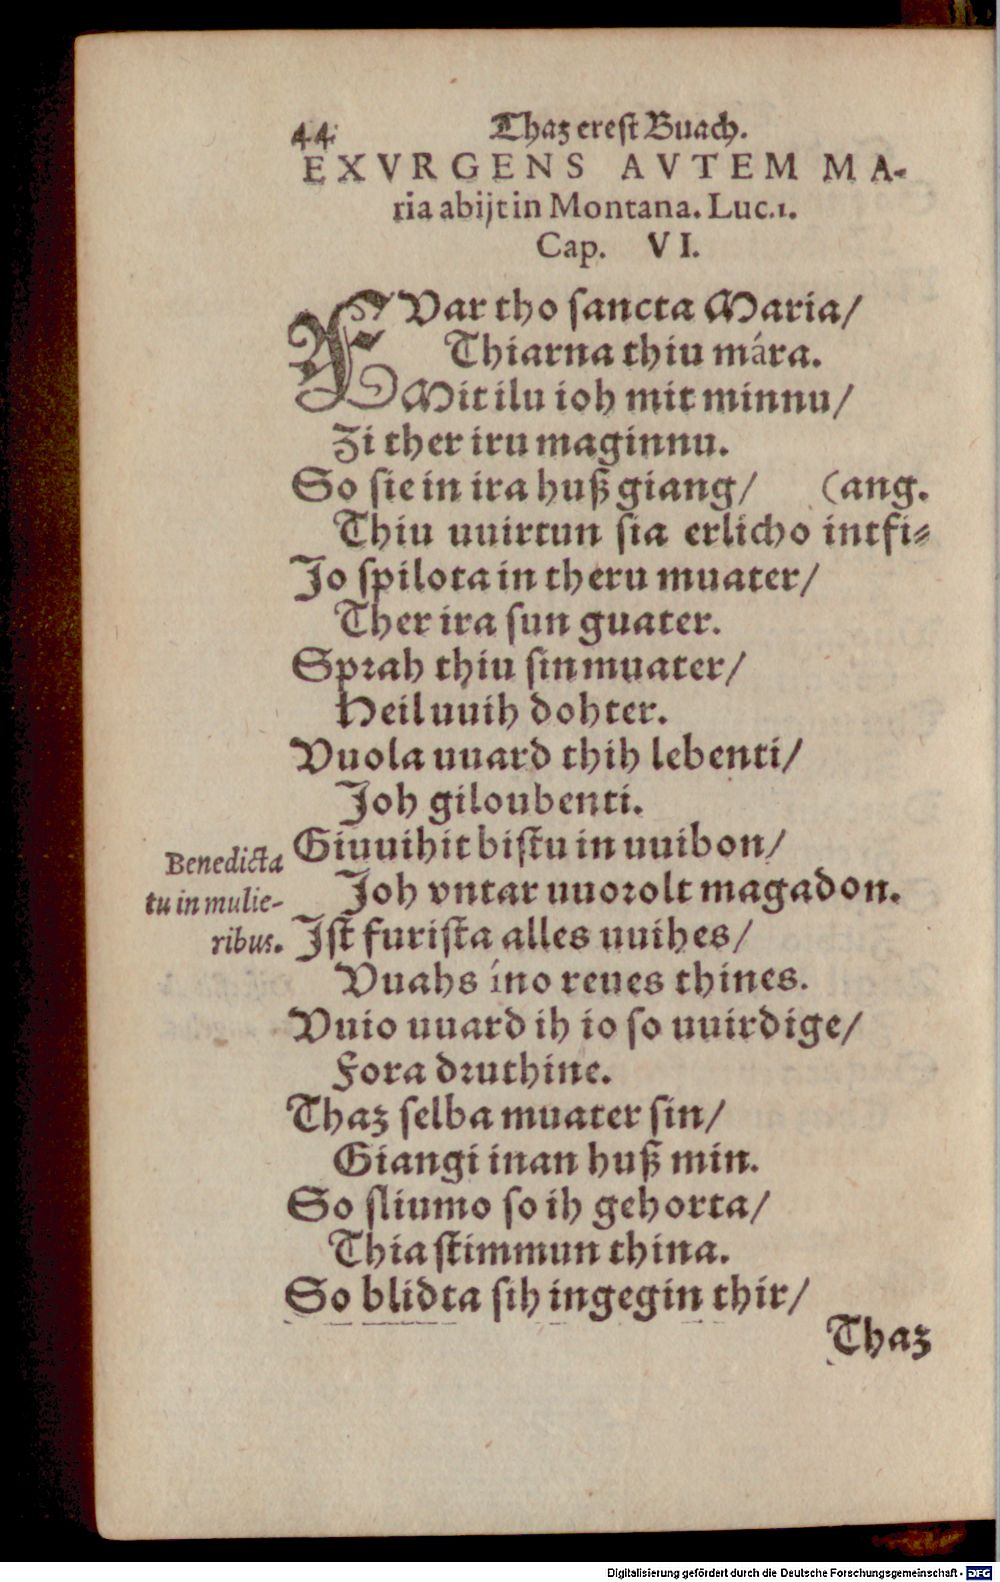 44 Thaz erest Buach.
EXVRGENS AVTEM MA-
ria abijt in Montana. Luc.1.
Cap. VI.
FVar tho sancta Maria/
Thiarna thiu mâra.
Mit ilu ioh mit minnu/
Zi ther iru maginnu.
So sie in ira huß giang/ (ang.
Thiu uuirtun sia erlicho intfi-
Jo spilota in theru muater/
Ther ira sun guater.
Sprah thiu sin muater/
Heil uuih dohter.
Vuola uuard thih lebenti/
Joh giloubenti.
Giuuihit bistu in uuibon/
Joh vntar uuorolt magadon.
Benedicta
tu in mulie-
ribus.
Ist furista alles uuihes/
Vuahs íno reues thines.
Vuio uuard ih io so uuirdige/
Fora druthine.
Thaz selba muater sin/
Giangi inan huß min.
So sliumo so ih gehorta/
Thia stimmun thina.
So blidta sih ingegin thir/
Thaz
Digitalisierung gefördert durch die Deutsche Forschungsgemeinschaft - DFG